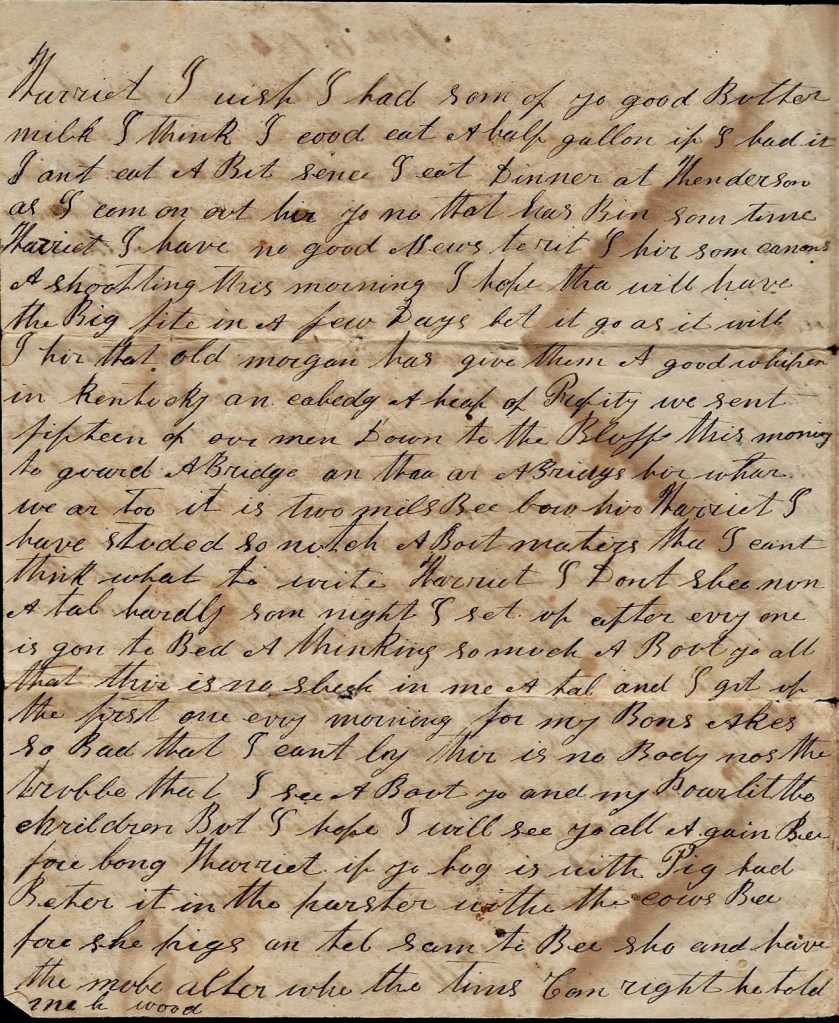 Harriet I wish I had som of yo good Botter
milk I think I cood eat A half gallon if I had it
I ant eat A Bit sence I eat Dinner at Henderson
as I com on ovt hir yo no that has Bin som time
Harriet I have no good News to rit I hir som canons
A shootting this morning I hope tha will have
the Big fite in A few Days bot it go as it will
I hir that old morgan has give them A good whipen
in kentocky an cabedg A heap of Propity we sent
fifteen of ovr men Down to the Bloffs this morning
to govrd A Bridge an thaa ar A Bridgs hir whar
we ar too it is two mils Bee low hir Harriet I
have studed so mutch A Bovt maters tha I cant
think what to write Harriet I Dont slee non
A tal hardly som night I set up after evry one
is gon to Bed A thinking so much A Bovt yo all
that thir is no sleep in me A tal and I git up
the first one evry morning for my Bons Akes
so Bad that I cant ly thir is no Body nos the
trobbe that I see A Bovt yo and my Pour little
children Bot I hope I will see yo all A gain Bee
fore long Harriet if yo hog is with Pig had
Beter it in the parster withe the cows Bee
fore she pigs an tel sam to Bee sho and have
the mole alter whe the tims Con right he told
me h wood